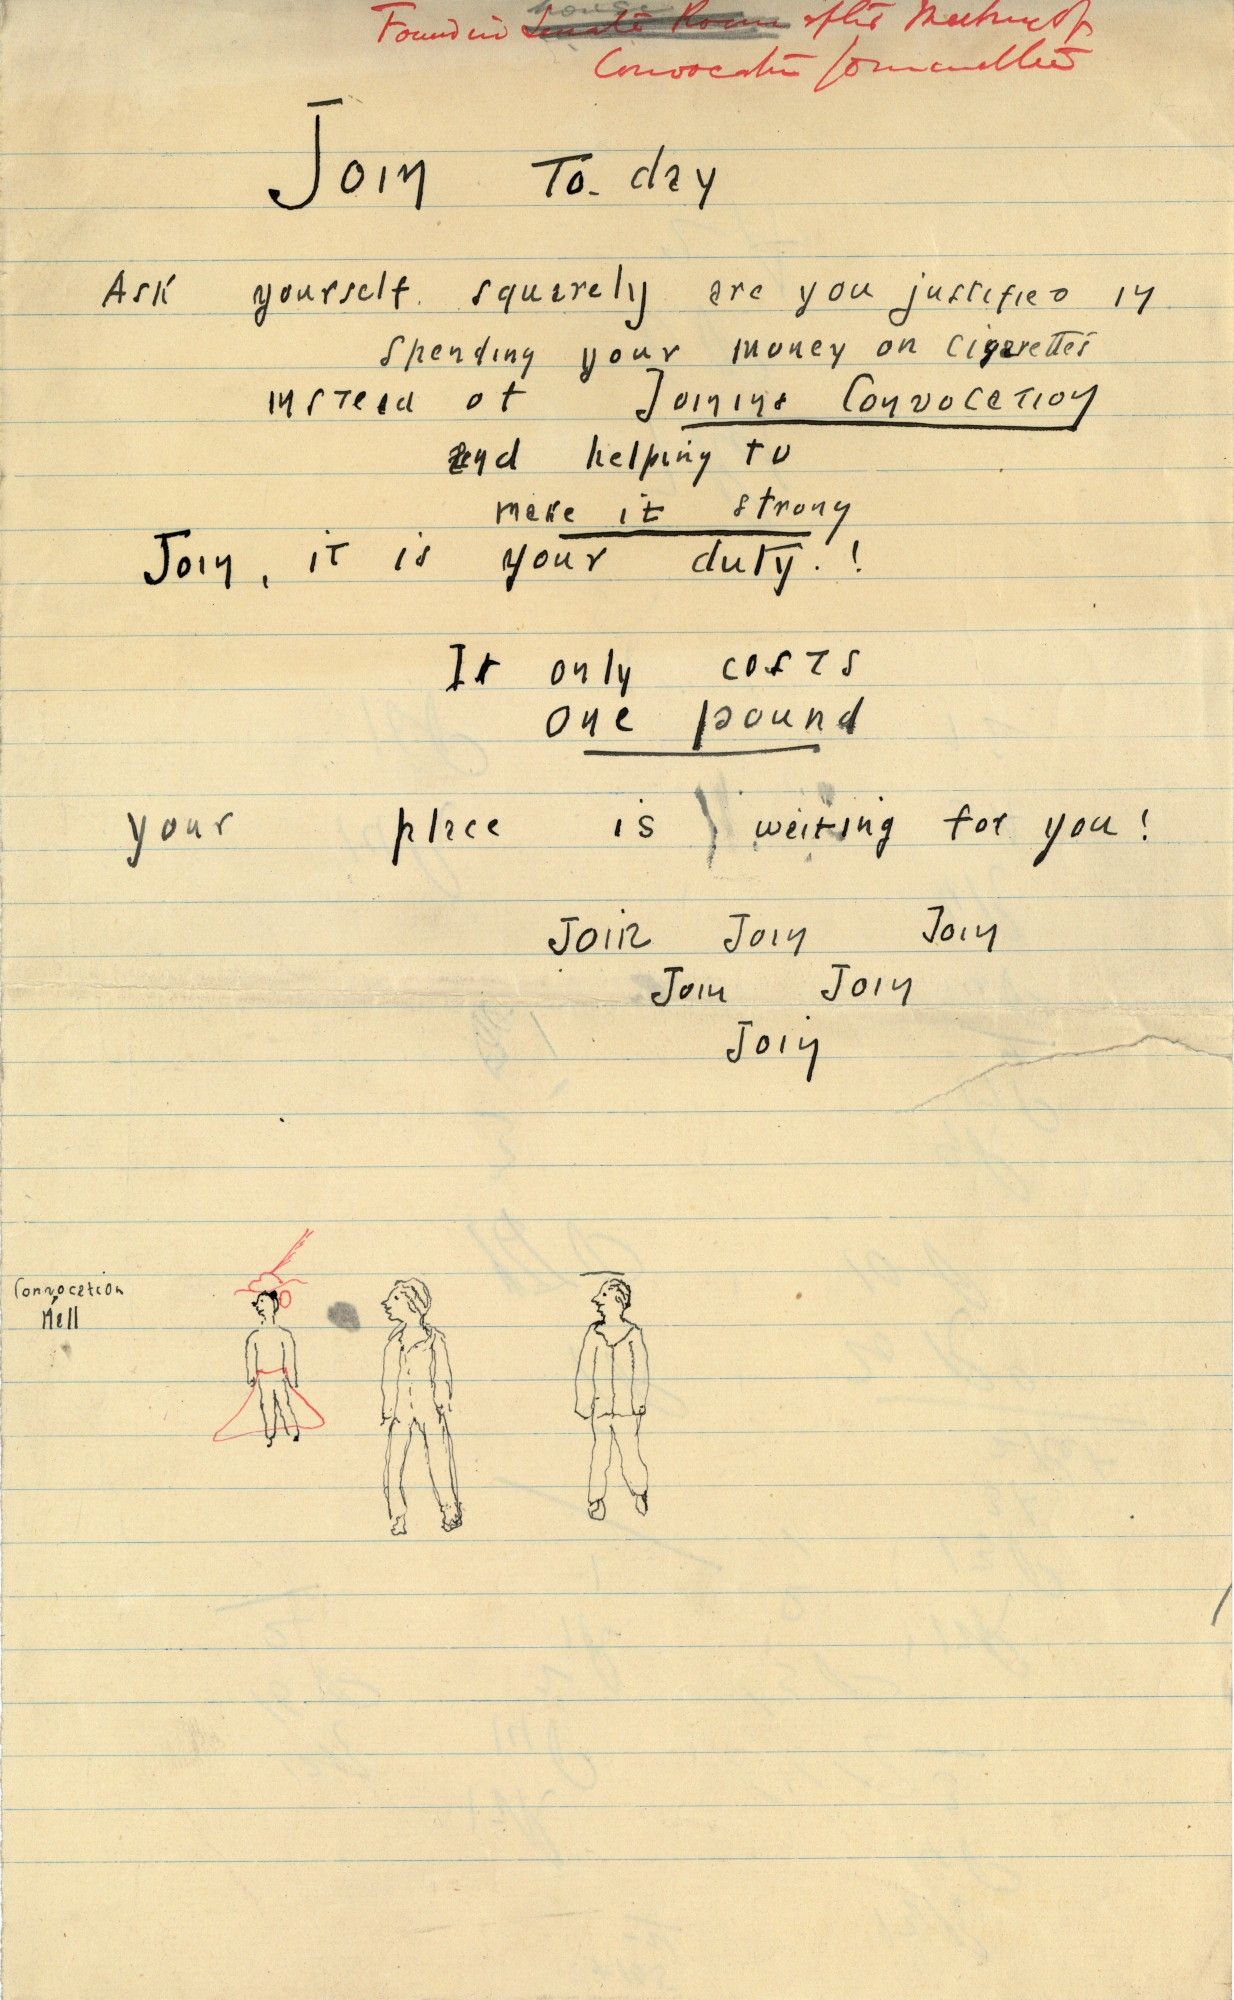 Found in Senate Room after Meeting of
house
Convocation Committee
Join To-day
Ask yourself squarely are you justified in
spending your money on cigarettes
instead of Joining Convocation
and helping to
make it strong
Join, it is your duty.!
It only costs
one pound
your place is waiting for you!
Join Join Join
Join Join
Join
Convocation